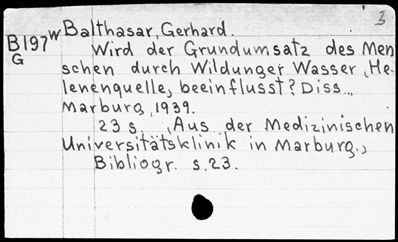 3
B197w Balthasar, Gerhard.
G
Wird der Grundumsatz des Men
schen durch Wildunger Wasser „He-
lenenquelle„ beeinflusst? Diss.,
Marburg, 1939.
23 s. „Aus der Medizinischen
Universitätsklinik in Marburg.„
Bibliogr. s.23.